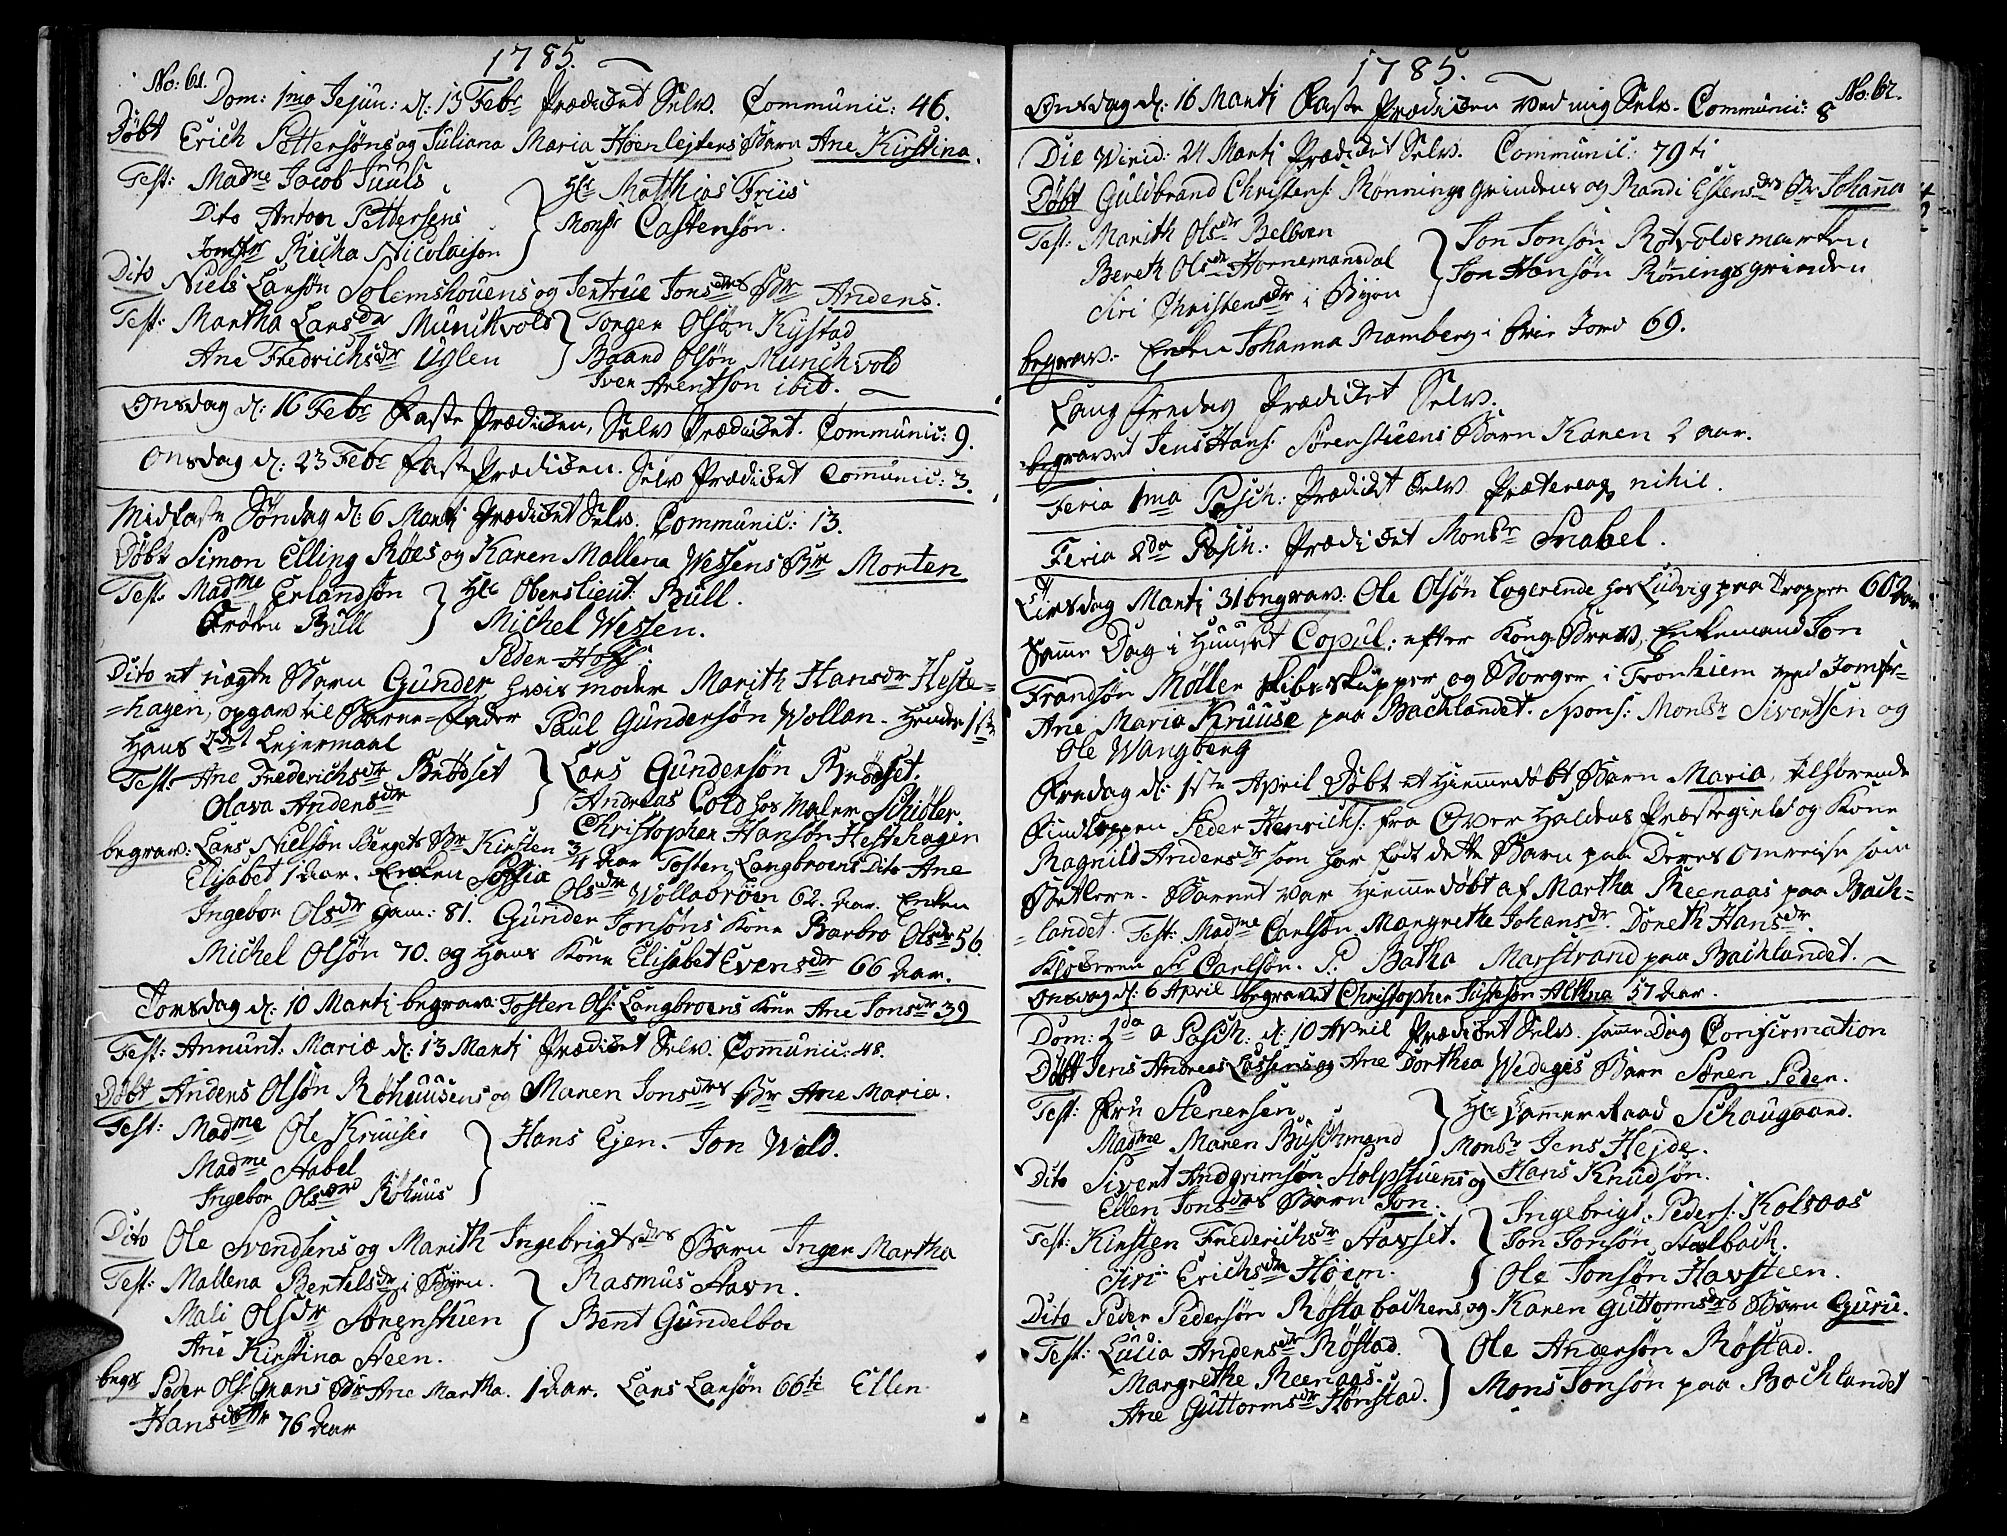 1785.
No: 61.
Dom: 1mo Jejun: d: 13 Febr Prædicket Selv. Communic: 46.
Døbt Erich Pettersøns og Juliana Maria Høenlejters Barn Ane Kirstina.
Test: Madme Jacob Juuls
Dito Anton Pettersens
Jomfr Richa Nicolaison
Hr Matthias Friis
Monsr Castensøn.
Dito Niels Larsøn Solemshouens og Jentrue Jonsdrs Br Anders.
Test: Martha Larsdr Munckvold
Ane Fredrichsdr Uglen
Torger Olsøn Kystad
Baard Olsøn Munchvold
Iver Arentson ibid.
Onsdag d: 16 Febr Faste Prædicken, Selv Prædicket. Communic: 9.
Onsdag d: 23 Febr Faste Prædicken. Selv Prædicket Communic: 3.
Midfaste Søndag d: 6 Martj Prædicket Selv. Communic: 13.
Døbt Simon Elling Røes og Karen Mallena Wessens Br Morten
Test: Madme Erlandsøn
Frøken Bull
Hr Oberstlieut: Bull.
Michel Wessen.
Peder Hoff
Dito et uægte Barn Gunder hvis moder Marith Hansdr Heste=
=hagen, opgav til Barne=Fader Paul Gundersøn Wollan. Hendes 1ste
Hans 2det Lejermaal
Test: Ane Frederichsdr Brødset
Olava Andersdr
Lars Gundersøn Brødset.
Andreas Cold hos Maler Schiøler.
Christopher Hansøn Hestehagen
begrav: Lars Nielsøn Bergets Br Kirsten 3/4 Aar Tosten Langbroens Dito Ane
Elisabet 1 Aar. Enken Sophia Olsdr Wollabroen 62. Aar. Enken
Ingebor Olsdr Gam: 81. Gunder Jonsøns Kone Barbro Olsdr 56
Michel Olsøn 70. og Hans Kone Elisabet Evensdr 66 Aar.
Torsdag d: 10 Martj begrav: Tosten Ols: Langbroens Kone Ane Jonsdr 39
Fest: Annunt: Mariæ d: 13 Martj Prædicket Selv. Communic: 48.
Døbt Anders Olsøn Røhuusens og Maren Jonsdrs Br Ane Maria.
Test: Madme Ole Kruuses
Madme Stabel
Ingebor Olsdr Røhuus
Hans Ejen. Jon Wold.
Dito Ole Svendsens og Marith Ingebrigtsdrs Barn Inger Martha
Test: Mallena Bertelsdr i Byen.
Mali Olsdr Sorenstuen
Ane Kirstina Steen.
Rasmus Stavn.
Bent Gundelbo
begr Peder Ols: Br Ane Martha. 1 Aar. Lars Larsøn 66ti Ellen
Hansdattr 76 Aar
1785.
No: 62.
Onsdag d: 16 Martj Faste Prædicken Ved mig Selv. Communic: 8
Die Virid: 24 Martj Prædicket Selv. Communic: 79ti
Døbt Guldbrand Christens: Rønnings grindens og Randi Estensdrs Br Johanna
Test: Marith Olsdr Belboen
Bereth Olsdr Hornemansdal
Siri Christensdr i Byen
Jon Jonsøn Rotvoldsmarken
Jon Hansøn Røningsgrinden
begrav: Enken Johanna Bramberg i frie Jord 69.
Lang Fredag Prædicket Selv.
begravet Jens Hans: Sørenstuens Barn Karen 2 aar.
Feria 1ma Pasch: Prædicket Selv Prætereaqve nihil.
Feria 2da Pasch: Prædicket Monsr Snabel.
Tirsdag Martj 31 begrav: Ole Olsøn Logerende hos Ludvig paa Trappen 60 Aar
Samme Dag i Huuset Copul: efter Konge Brev, Enkemand Jon
Frandsøn Møller Skibs Skipper og Borger i Tronhiem med Jomfr
Ane Maria Kruuse paa Bachlandet. Spons: Monsr Sivertsen og
Ole Wangberg
Fredag d: 1ste April Døbt et Hiemmedøbt Barn Maria, tilhørende
Findlappen Peder Henrichs: fra Over Haldens Præstegield og Kone
Ragnild Andersdr som har født dette Barn paa Deres omreise som
Betlere. Barnet var Hiemme døbt af Martha Reenaas paa Bach=
=landet. Test: Madme Carlsøn, Margrethe Johansdr. Doreth Hansdr.
Klockeren Sr Carlsøn. P: Batha Marstrand paa Bachlandet.
Onsdag d: 6 April begravet Christopher Justesøn Altna 57 Aar.
Dom: 2da a Pasch: d: 10 April Prædicket Selv. samme Dag Confirmation
Døbt Jens Andreas Lossens og Ane Dorthea Wedeges Barn Søren Peder.
Test: Fru Stenersen
Madme Maren Buschmand
Hr Kammer Raad Schaugaard.
Monsr Jens Hejde.
Hans Knudsøn.
Dito Sivert Andgrimsøn Holpstuens og
Ellen Jonsdrs Barn Jon.
Test: Kirsten Frederichsdr Havset.
Siri Erichsdr Høiem.
Ingebrigt Peders: Kolsaas
Jon Jonsøn Stalbach.
Ole Jonsøn Havsteen.
Dito Peder Pedersøn Røstabachens og Karen Guttormsdrs Barn Guru.
Test: Lucia Andersdr Røstad.
Margrethe Reenaas.
Ane Guttormsdr Hønstad.
Ole Andersøn Røstad.
Mons Jonsøn paa Bachlandet